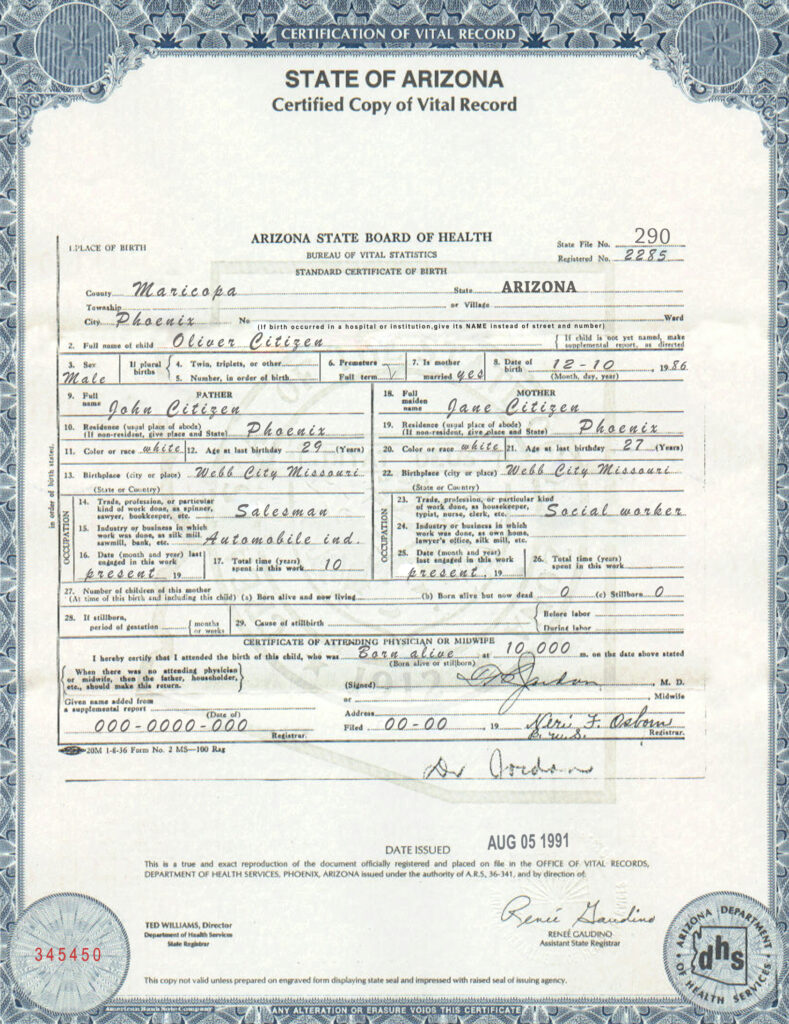 CERTIFICATION OF VITAL RECORD
STATE OF ARIZONA
Certified Copy of Vital Record
1.PLACE OF BIRTH
ARIZONA STATE BOARD OF HEALTH
BUREAU OF VITAL STATISTICS
STANDARD CERTIFICATE OF BIRTH
State File No. 290
Registered No. 2285
County Maricopa State ARIZONA
Township or Village
City Phoenix No Ward
(If birth occurred in a hospital or institution,give its NAME instead of street and number)
2. Full name of child Oliver Citizen { If child is not yet named, make supplemental report, as directed
3. Sex Male
If plural births { 4. Twin, triplets, or other
5. Number, in order of birth
6. Premature
Full term
7. Is mother married yes
8. Date of birth 12-10 , 1986
(Month, day, year)
9. Full name FATHER
John Citizen
18. Full maiden name MOTHER
Jane Citizen
10. Residence (usual place of abode)
(If non-resident, give place and State) Phoenix
19. Residence (usual place of abode)
(If non-resident, give place and State) Phoenix
11. Color or race white 12. Age at last birthday 29 (Years)
20. Color or race white 21. Age at last birthday 27 (Years)
13. Birthplace (city or place) Webb City Missouri
(State or Country)
22. Birthplace (city or place) Webb City Missouri
(State or Country)
in order of birth stated.
OCCUPATION
14. Trade, profession, or particular
kind of work done, as spinner,
sawyer, bookkeeper, etc. Salesman
15. Industry or business in which
work was done, as silk mill,
sawmill, bank, etc. Automobile ind.
16. Date (month and year) last
engaged in this work
present , 19
17. Total time (years)
spent in this work 10
OCCUPATION
23. Trade, profession, or particular kind
of work done, as housekeeper,
typist, nurse, clerk, etc. Social worker
24. Industry or business in which
work was done, as own home,
lawyer's office, silk mill, etc.
25. Date (month and year)
last engaged in this work
present , 19
26. Total time (years)
spent in this work
27. Number of children of this mother
(At time of this birth and including this child) (a) Born alive and now living (b) Born alive but now dead 0 (c) Stillborn 0
28. If stillborn,
period of gestation { months or weeks
29. Cause of stillbirth { Before labor
During labor
CERTIFICATE OF ATTENDING PHYSICIAN OR MIDWIFE
I hereby certify that I attended the birth of this child, who was Born alive at 10,000 m. on the date above stated
(Born alive or stillborn)
{ When there was no attending physician
or midwife, then the father, householder,
etc., should make this return. }
(Signed) M. D.
or Midwife
Given name added from
a supplemental report
(Date of)
000-0000-000
Registrar.
Address
Filed 00-00 , 19 Neri F. Osborn
Registrar.
20M 1-8-36 Form No. 2 MS—100 Rag
Dr Jordan
DATE ISSUED AUG 05 1991
This is a true and exact reproduction of the document officially registered and placed on file in the OFFICE OF VITAL RECORDS,
DEPARTMENT OF HEALTH SERVICES, PHOENIX, ARIZONA issued under the authority of A.R.S, 36-341, and by direction of:
TED WILLIAMS, Director
Department of Health Services
State Registrar
Reneé Gaudino
RENEÉ GAUDINO
Assistant State Registrar
345450
ARIZONA DEPARTMENT OF HEALTH SERVICES
dhs
This copy not valid unless prepared on engraved form displaying state seal and impressed with raised seal of issuing agency.
American Bank Note Company
ANY ALTERATION OR ERASURE VOIDS THIS CERTIFICATE